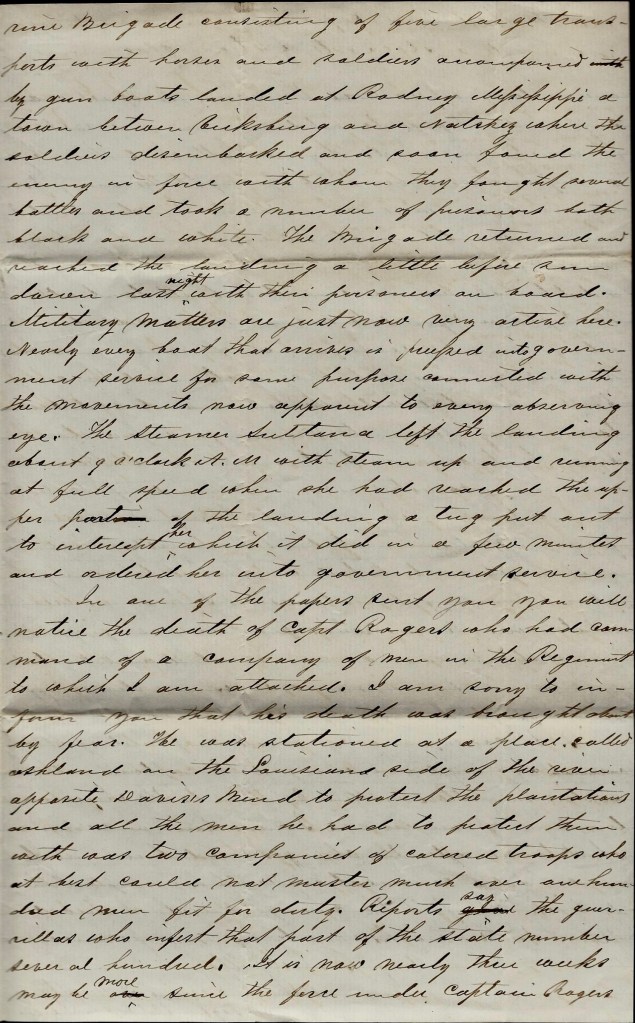 rine Brigade consisting of five large trans-
ports with horses and soldiers accompanied with
by gun boats landed at Rodney Mississippi a
town between Vicksburg and Natchez where the
soldiers disembarked and soon found the
enemy in force with whom they fought several
battles and took a number of prisoners both
black and white. The Brigade returned and
reached the landing a little before sun
down last night with their prisoners on board.
Military matters are just now very active here.
Nearly every boat that arrives is pressed into govern-
ment service for some purpose connected with
the movements now apparent to every observing
eye. The Steamer Sultana left the landing
about 9 o'clock A. M with steam up and running
at full speed when she had reached the up-
per portion of the landing a tug put out
to intercept her which it did in a few minutes
and ordered her into government service.
In one of the papers sent you you will
notice the death of Capt Rogers who had com-
mand of a company of men in the Regiment
to which I am attached. I am sorry to in-
form you that his death was brought about
by fear. He was stationed at a place called
Ashland on the Louisiana side of the river
opposite Davises Bend to protect the plantations
and all the men he had to protect them
with was two companies of colored troops who
at best could not muster much over one hun
dred men fit for duty. Reports say the guer-
rillas who infest that part of the state number
several hundred. It is now nearly three weeks
may be more since the force under Captain Rogers